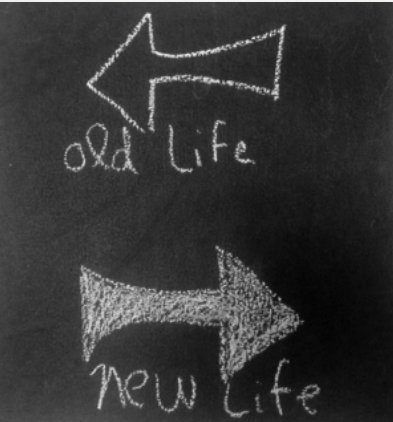 old Life
new Life